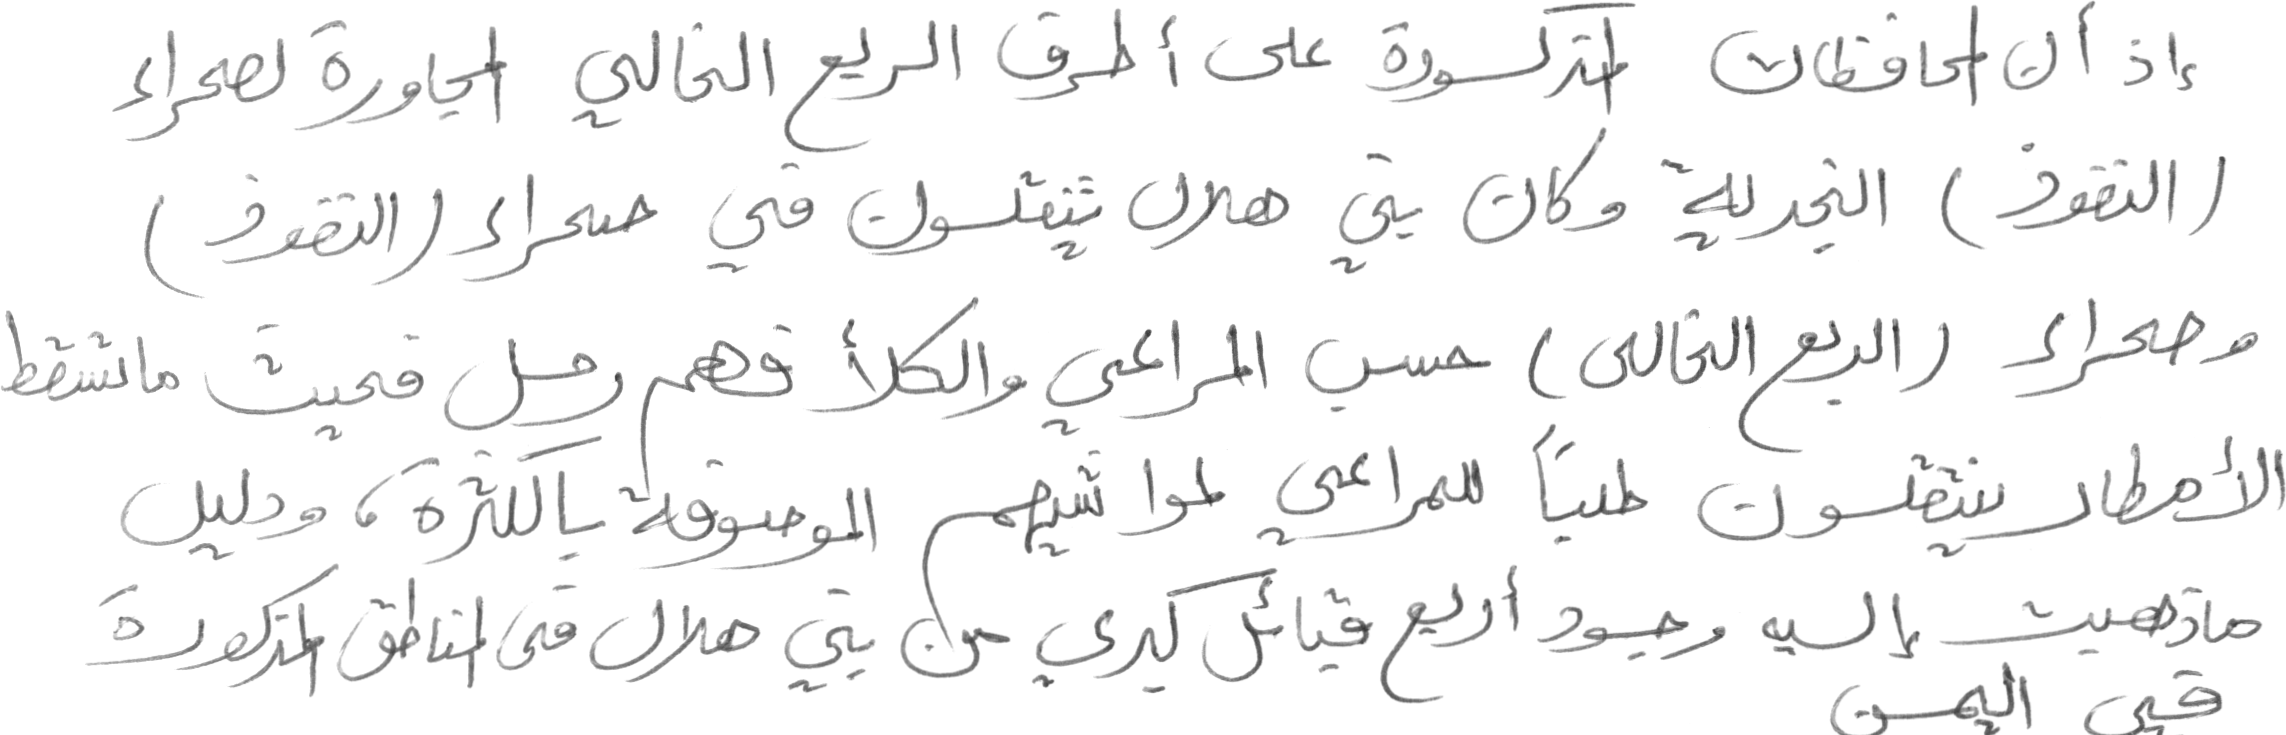 إذ أن المحافظات المذكورة على أطرق الربع الخالي المجاورة لصحراء
(النفوذ) النجدية وكان بني هلال يتنقلون في صحراء (النفوذ)
وصحراء (الربع الخالى) حسب المراعي والكلأ فهم رحل فحيث ماتسقط
الأمطار يتنقلون طلباً للمراعي لمواشيهم الموصوفة بالكثرة، ودليل
ماذهبت إليه وجود أربع قبائل كبرى من بني هلال فى المناطق المذكورة
في اليمن